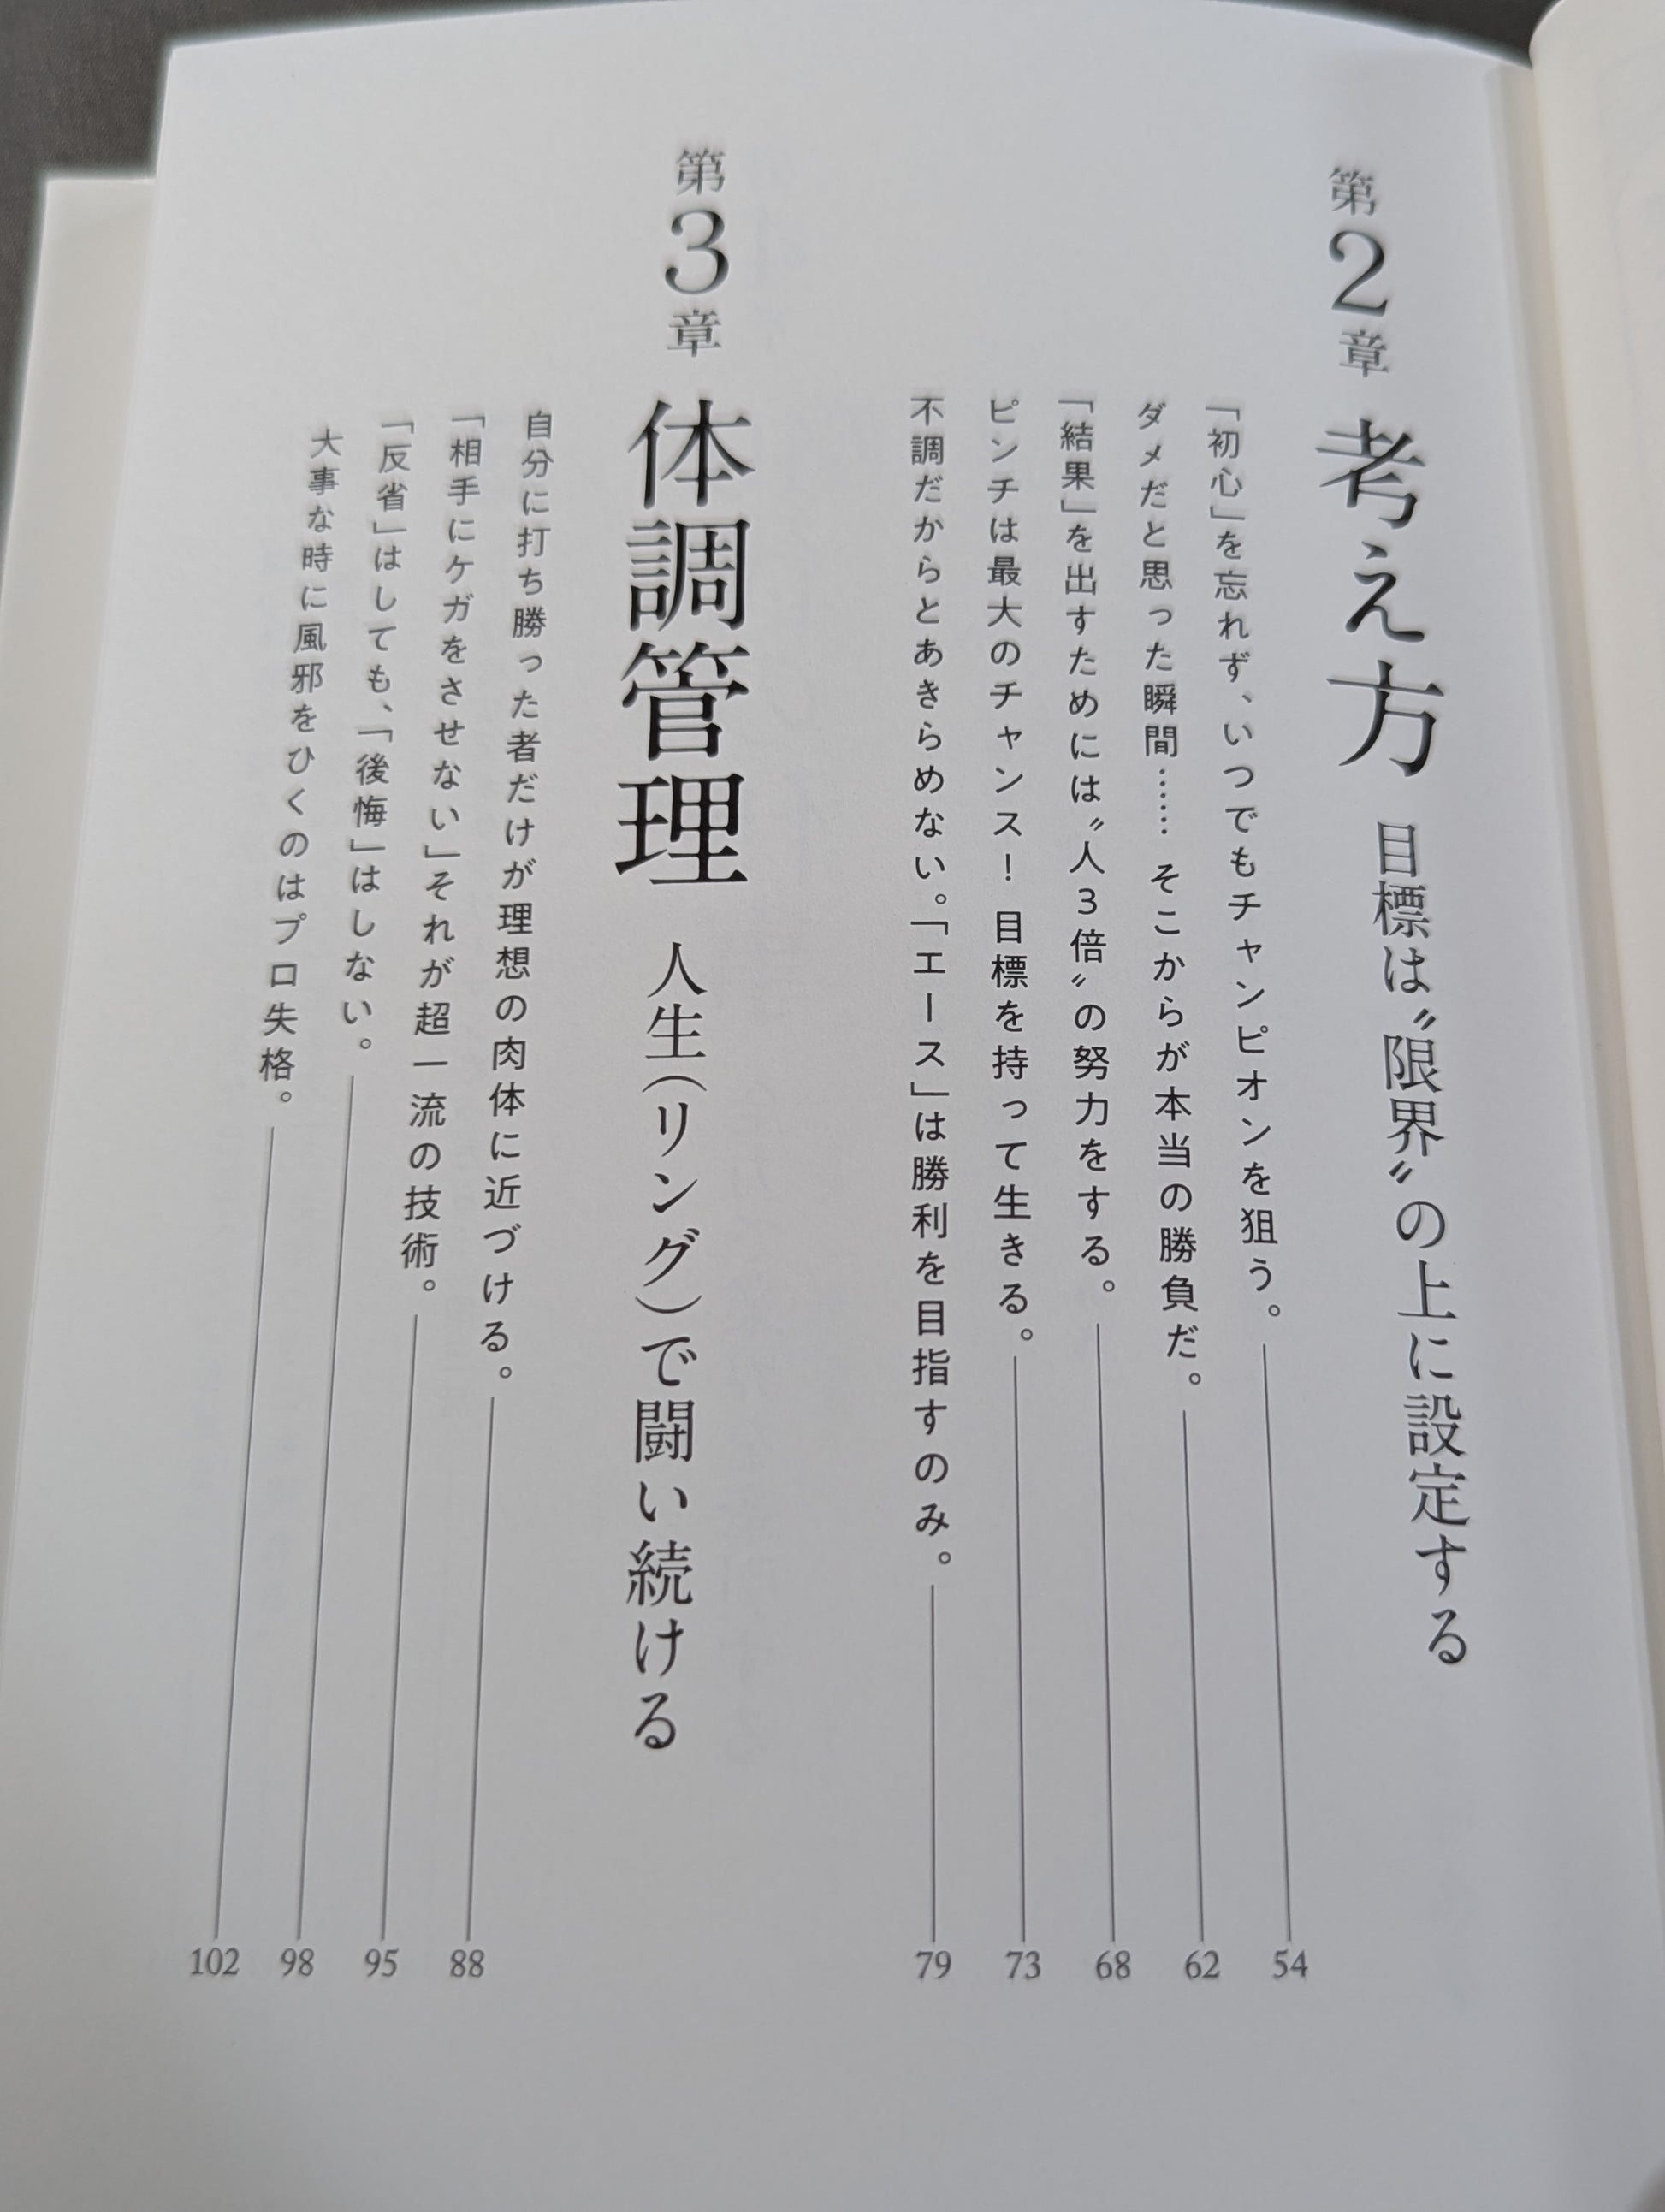 第2章 考え方 目標は〝限界〟の上に設定する
「初心」を忘れず、いつでもチャンピオンを狙う。 54
ダメだと思った瞬間…… そこからが本当の勝負だ。 62
「結果」を出すためには〝人3倍〟の努力をする。 68
ピンチは最大のチャンス! 目標を持って生きる。 73
不調だからとあきらめない。「エース」は勝利を目指すのみ。 79
第3章 体調管理 人生(リング)で闘い続ける
自分に打ち勝った者だけが理想の肉体に近づける。 88
「相手にケガをさせない」それが超一流の技術。 95
「反省」はしても、「後悔」はしない。 98
大事な時に風邪をひくのはプロ失格。 102